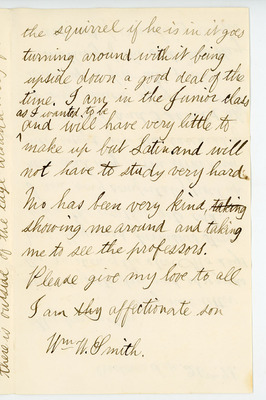 the squirrel if he is in it goes
turning around with it being
upside down a good deal of the
time. I am in the Junior class
as I wanted to be
and will have very little to
make up but Latin and will
not have to study very hard
has been very kind, taking
showing me around and taking
me to see the professors.
Please give my love to all
I am thy affectionate son
Wm W. Smith.
there is outside of the cage